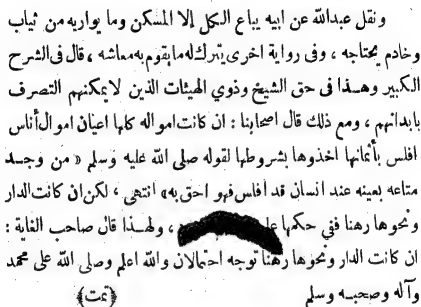 ونقل عبدالله عن ابيه يباع الكل إلا المسكن وما يواريه من ثياب
وخادم يحتاجه ، وفى رواية اخرى يترك له ما يقوم به معاشه ، قال فى الشرح
الكبير وهذا فى حق الشيخ وذوي الهيئات الذين لا يمكنهم التصرف
بابدانهم ، ومع ذلك قال اصحابنا : ان كانت امواله كلها اعيان اموال أناس
افلس بأثمانها اخذوها بشروطها لقوله صلى الله عليه وسلم « من وجد
متاعه بعينه عند انسان قد افلس فهو احق به» انتهى ، لكن ان كانت الدار
ونحوها رهنا ففي حكمها ، ولهذا قال صاحب الغاية :
ان كانت الدار ونحوها رهنا توجه احتمالان والله اعلم وصلى الله على محمد
وآله وصحبه وسلم ﴿تمت﴾